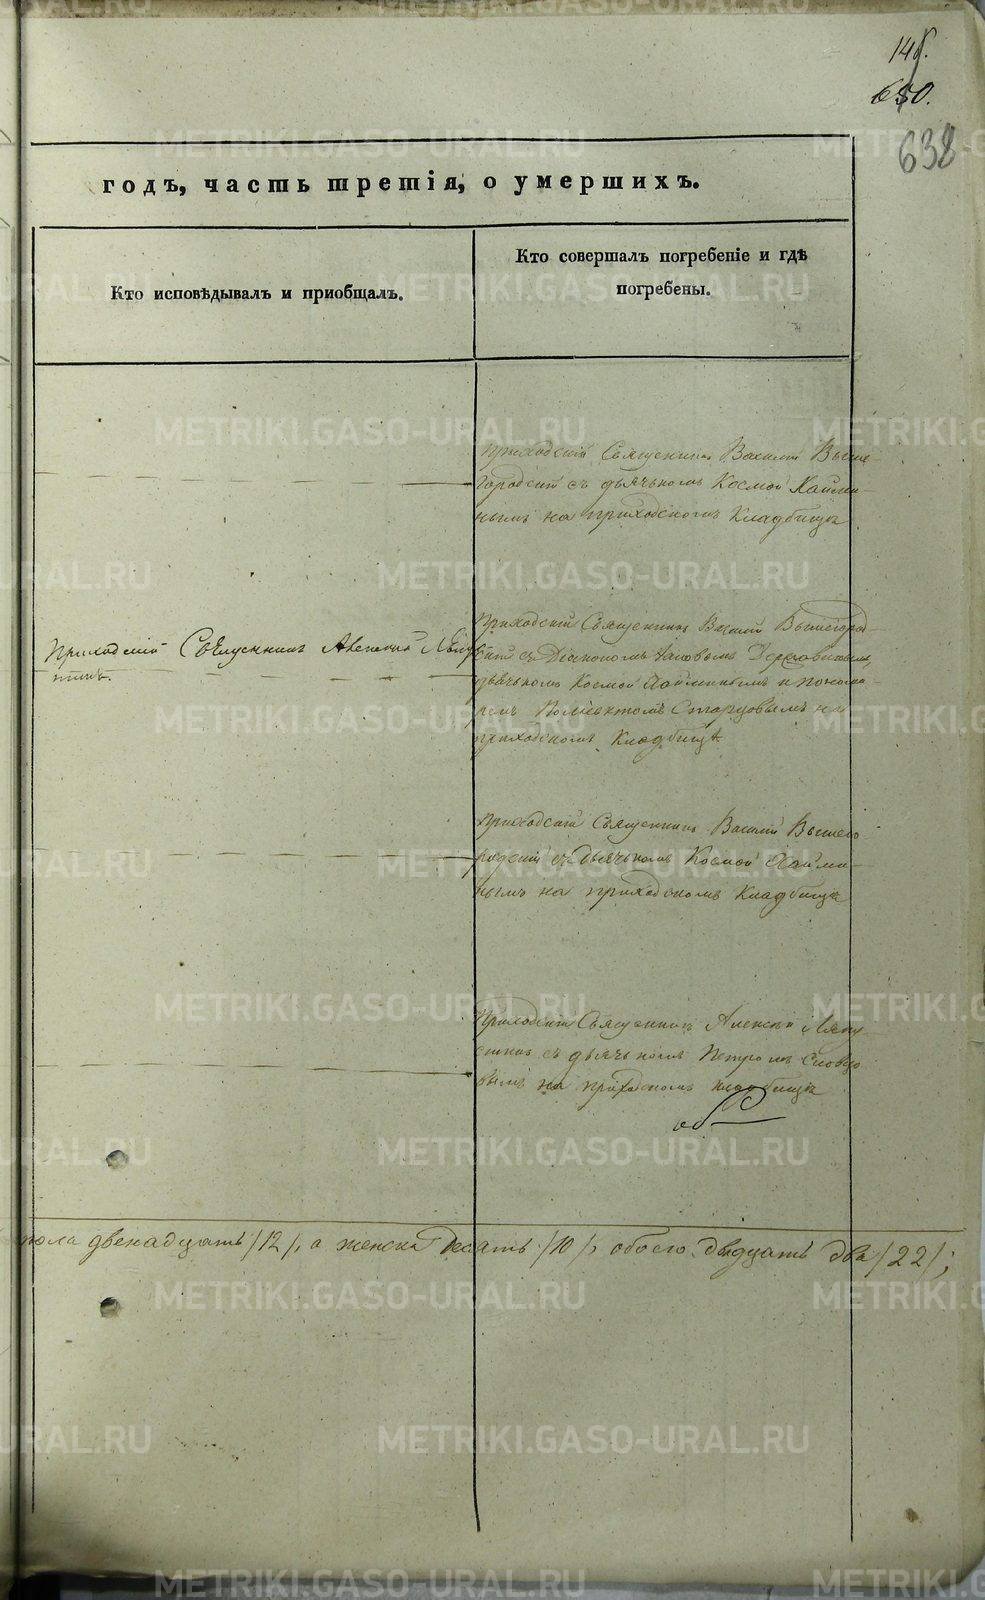 148.
650.
638
годъ, часть третія, о умершихъ.
Кто исповѣдывалъ и приобщалъ.
Кто совершалъ погребеніе и гдѣ
погребены.
Приходскій Священникъ Василій Выше-
городскій съ дьячкомъ Космой Хайми-
нымъ на приходскомъ кладбищѣ
Приходскій Священникъ Алексій
Приходскій Священникъ Василій Вышегород-
скій съ Діакономъ
дьячкомъ Космой Хайминымъ и понома-
ремъ Старцовымъ на
приходскомъ кладбищѣ
Приходскій Священникъ Василій Вышего-
родскій съ дьячкомъ Космой Хайми-
нымъ на приходскомъ кладбищѣ
Приходскій Священникъ Алексій
съ дьячкомъ Петромъ Словцо
вымъ на приходскомъ кладбищѣ
пола двенадцать /12/, а женска десять /10/, обоего двадцать два /22/;
METRIKI.GASO-URAL.RU